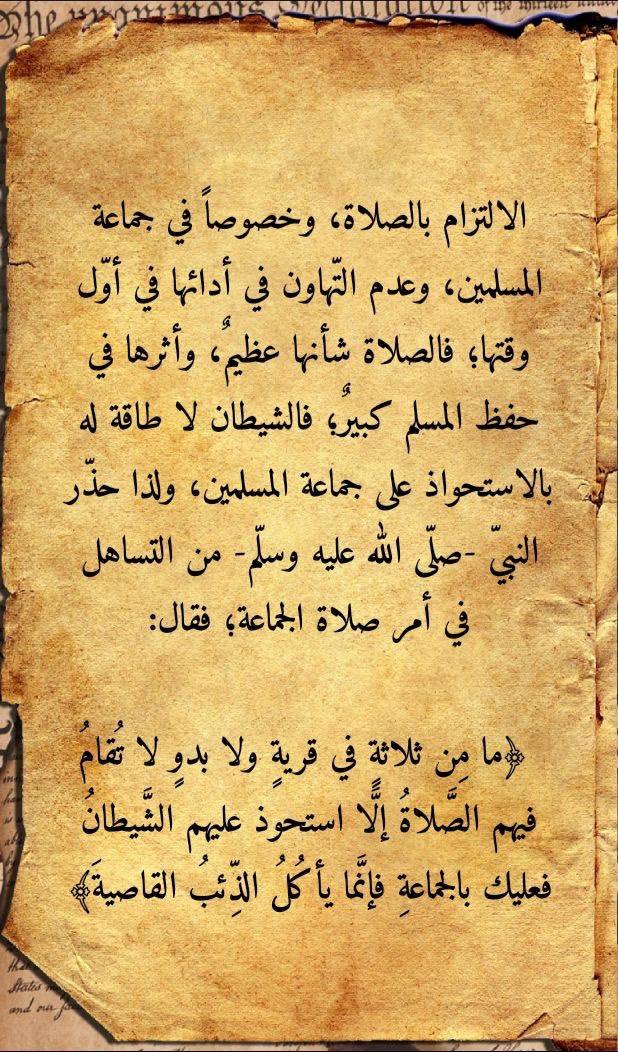 The unanimous Declaration of the thirteen united
الالتزام بالصلاة، وخصوصاً في جماعة
المسلمين، وعدم التّهاون في أدائها في أوّل
وقتها؛ فالصلاة شأنها عظيمٌ، وأثرها في
حفظ المسلم كبيرٌ؛ فالشيطان لا طاقة له
بالاستحواذ على جماعة المسلمين، ولذا حذّر
النبيّ -صلّى الله عليه وسلّم- من التساهل
في أمر صلاة الجماعة؛ فقال:
﴿ما مِن ثلاثةٍ في قريةٍ ولا بدوٍ لا تُقامُ
فيهم الصَّلاةُ إلَّا استحوذ عليهم الشَّيطانُ
فعليك بالجماعةِ فإنَّما يأكُلُ الذِّئبُ القاصيةَ﴾
that
States
and our